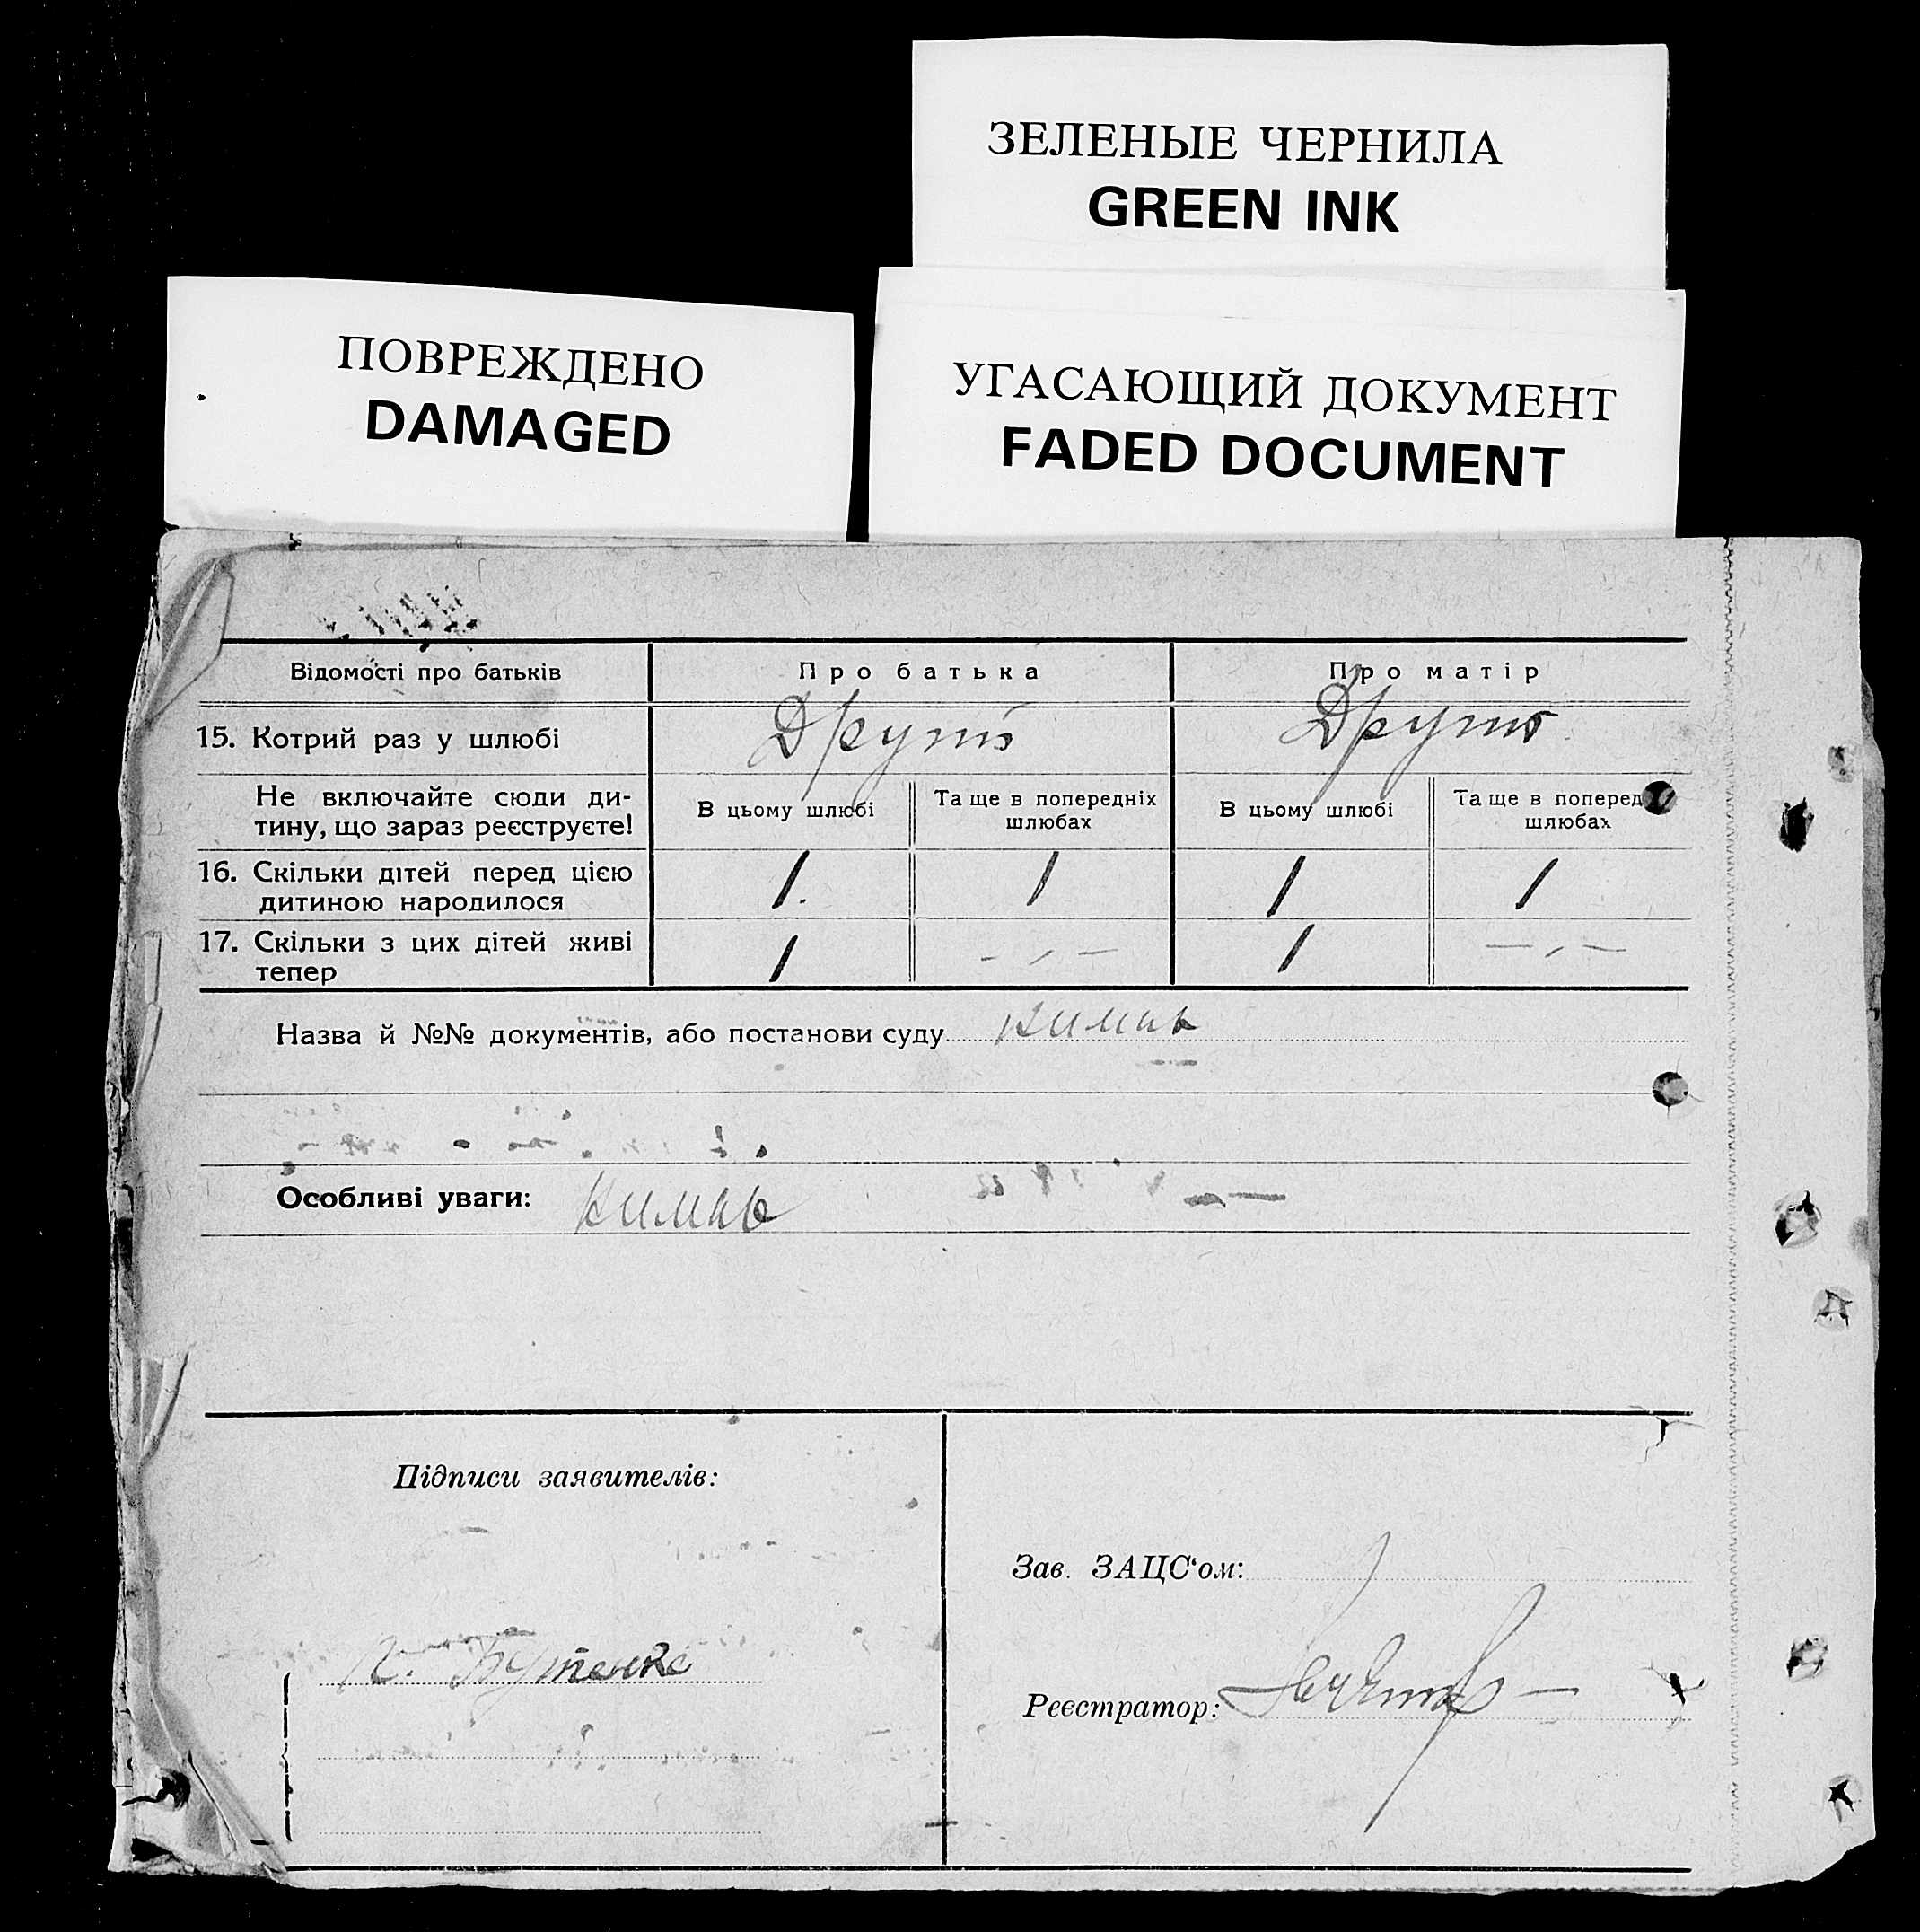 ЗЕЛЕНЫЕ ЧЕРНИЛА
GREEN INK
ПОВРЕЖДЕНО
DAMAGED
УГАСАЮЩИЙ ДОКУМЕНТ
FADED DOCUMENT
Відомості про батьків
Про батька
Про матір
15. Котрий раз у шлюбі
Не включайте сюди ди-
тину, що зараз реєструєте!
В цьому шлюбі
Та ще в попередніх
шлюбах
В цьому шлюбі
Та ще в поперед
шлюбах
16. Скільки дітей перед цією
дитиною народилося
1. 1 1 1
17. Скільки з цих дітей живі
тепер
1 - „ - 1 - „ -
Назва й №№ документів, або постанови суду
Особливі уваги:
Підписи заявителів:
Бутенко
Зав. ЗАЦС'ом:
Реєстратор: